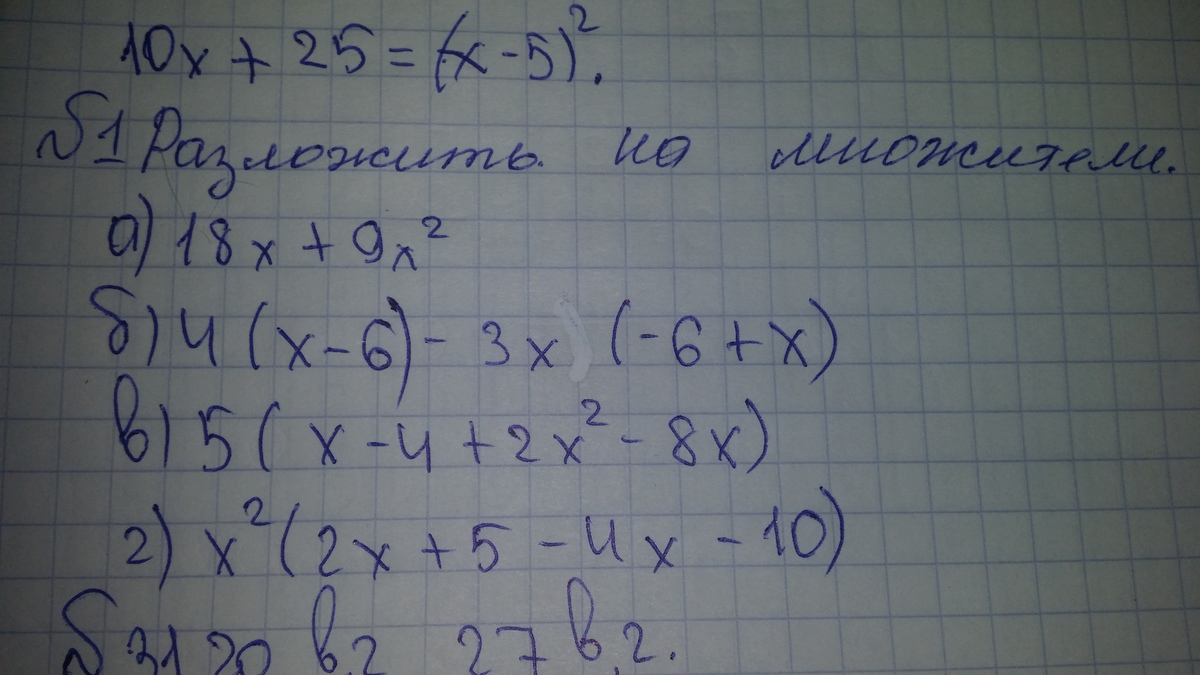 10x + 25 = (x - 5)².
№1 Разложить на множители.
а) 18x + 9x²
б) 4 (x - 6) - 3x (-6 + x)
в) 5 ( x - 4 + 2x² - 8x)
г) x² (2x + 5 - 4x - 10)
№ 31 20 в,г 27 в,г.